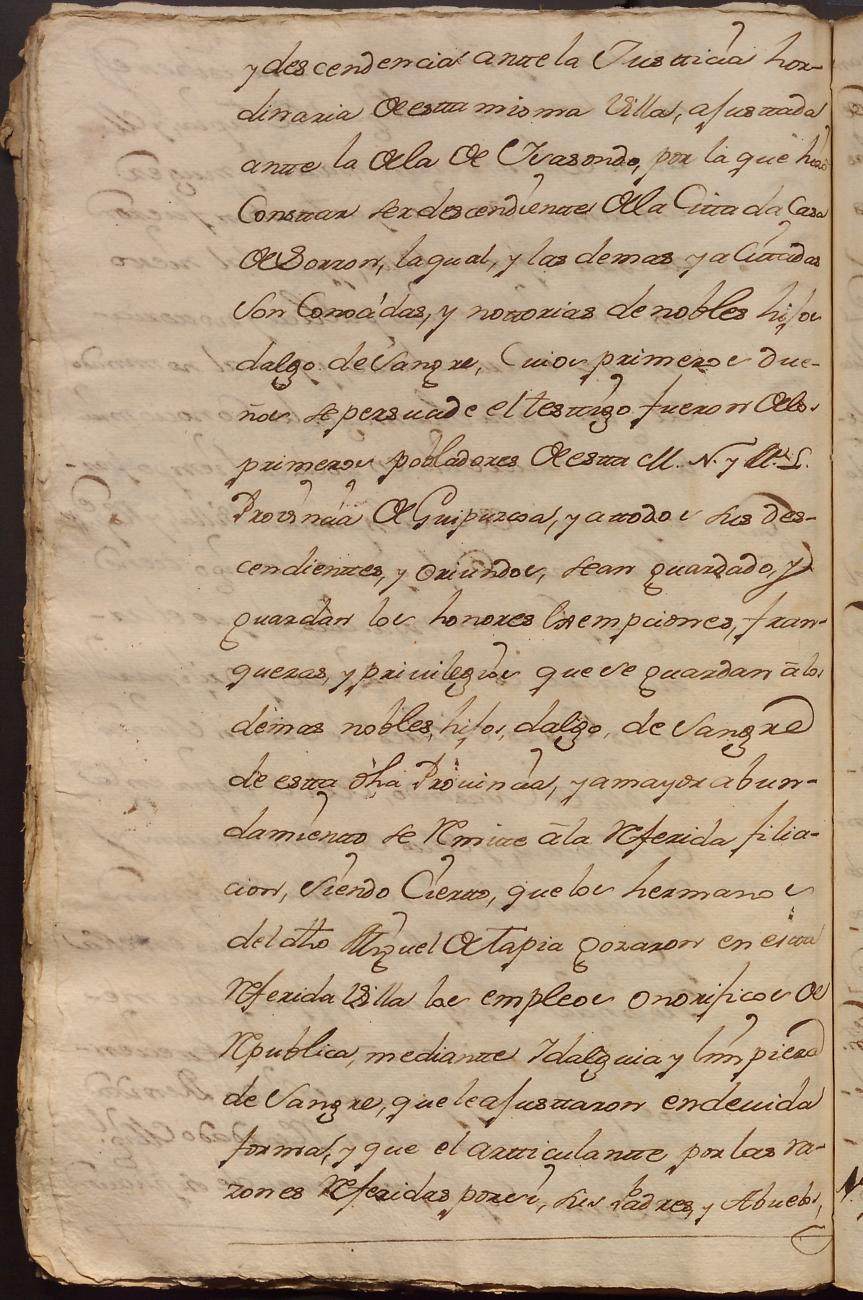 y descendencia ante la Justticia hor-
dinaria de estta misma Villa, ajusttada
antte la de la de Ysasondo, por la que hizo
Consttar ser descendientte de la Cittada Casa
de Sorron, la qual, y las demas ya Cittadas
son Conocidas, y nottorias de nobles hijos
dalgo de Sangre, Cuios primeros due-
ños se persuade el testtigo fueron de los
primeros pobladores de estta M. N. y M. L.
Provincia de Guipuzcoa, y a ttodos sus des-
cendienttes, y oriundos, sean guardado, y
guardan los honores Exempciones, fran-
quezas, y privilegios que se guardan á los
demas nobles, hijos, dalgo, de Sangre
de estta dha Provincia, y a mayor abun-
damientto se Remitte á la Referida filia-
cion, siendo Cierto, que los hermanos
del dho Miguel de tapia gozaron en estta
Referida Villa los empleos onorificos de
Republica, mediantte Idalguia y limpieza
de Sangre, que le ajusttaron en devida
forma, y que el articulantte por las ra-
zones Referidas por si, sus Padres, y Abuelos,